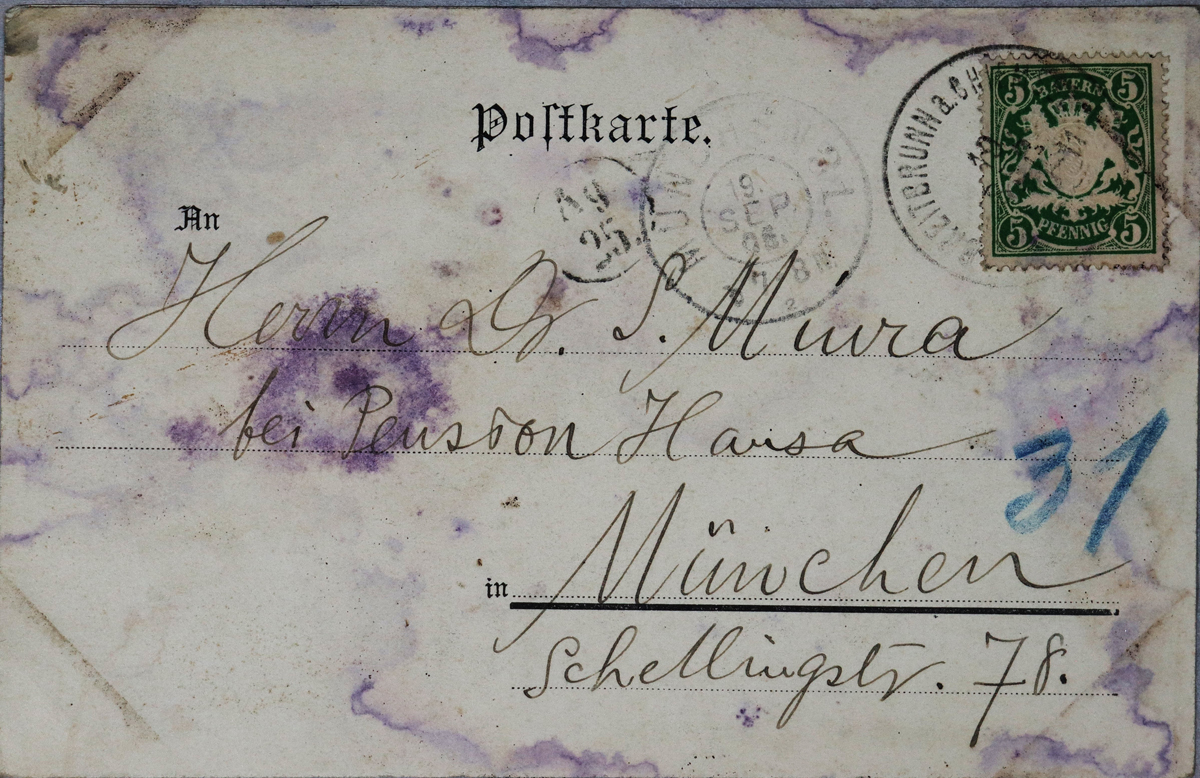 Postkarte.
BREITBRUNN a. CH
5 BAYERN 5
5 PFENNIG 5
MÜNCHEN 2.
19.
SEP.
98.
7-8
Ag
25.
An
Herrn Dr. S. Miura
bei Pension Hansa
31
in München
Schellingstr. 78.